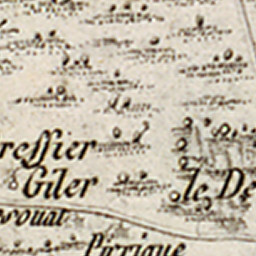 ressier
Giler
le De
rouat
Pirrique